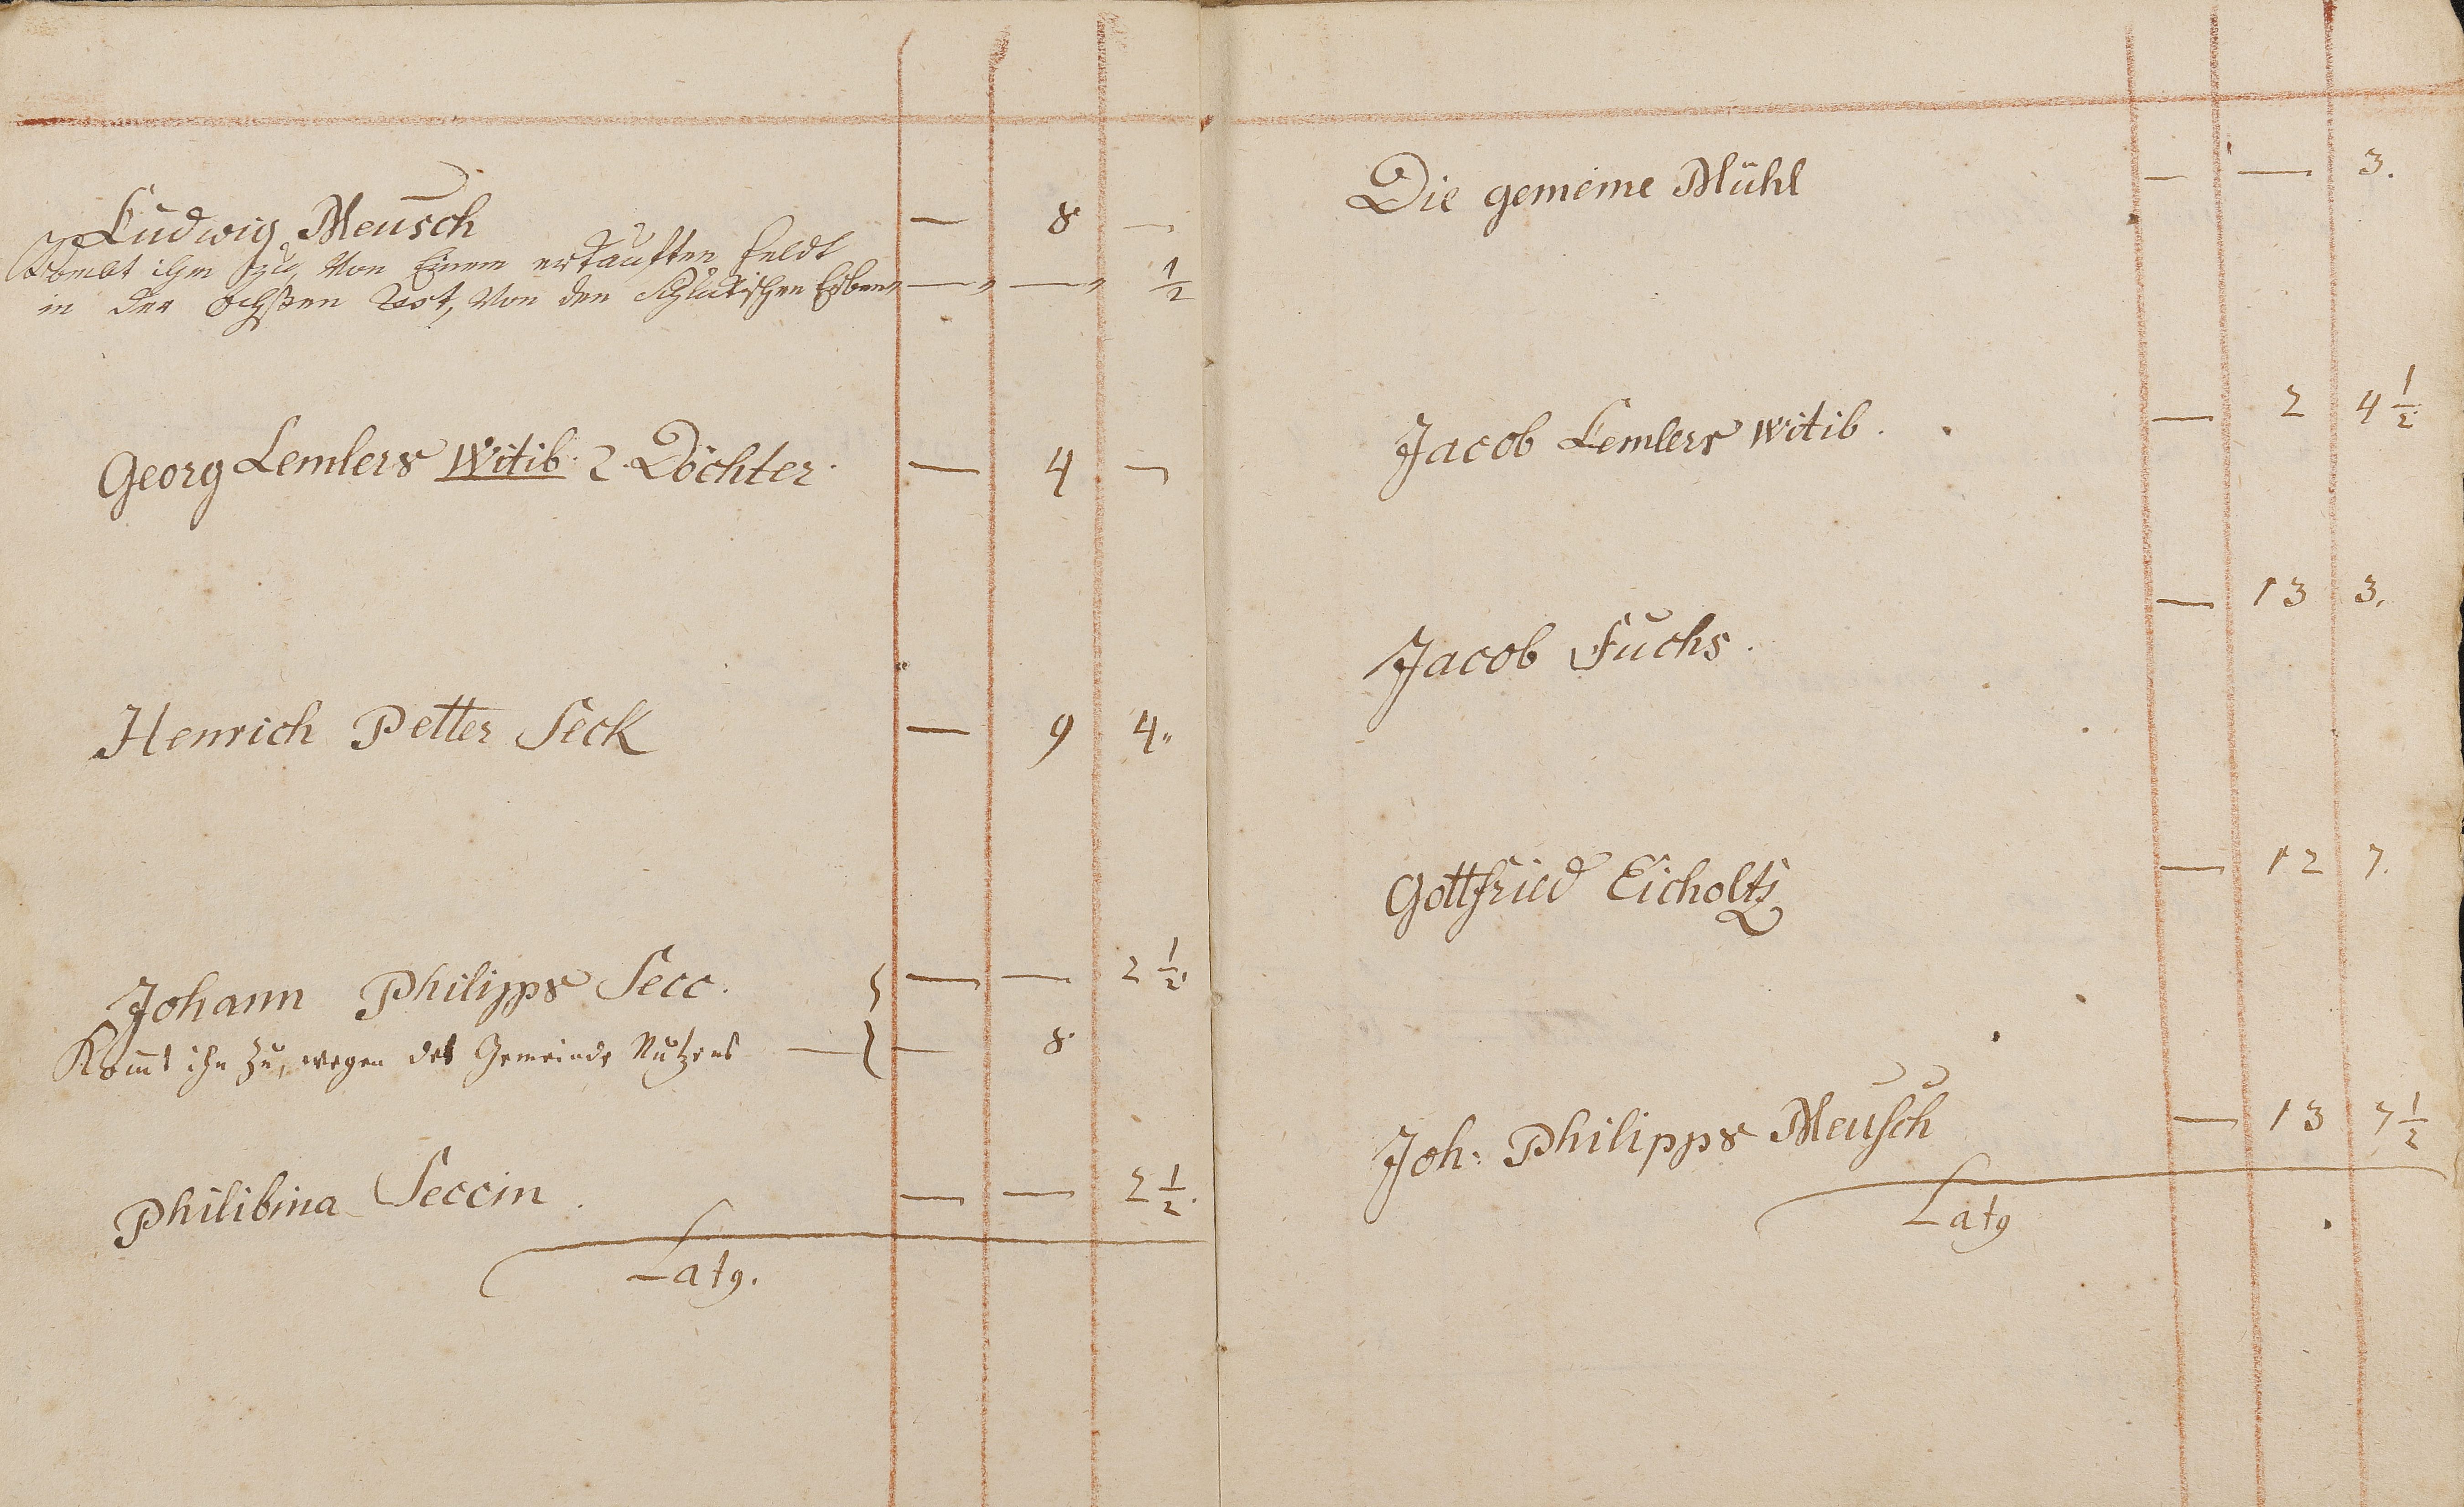 Ludwig Meusch — 8 —
Kombt ihm zu, Von Einem erkaufften Feldt
in der Ochßen Rot, Von den Erben — — 1/2
Georg Lemlers Witib. 2. Döchter. — 4 —
Henrich Petter Seck — 9 4.
Johann Philipps Secc. — — 2 1/2
Komt ihn zu, wegen des Gemeinde Nutzens — — 8
Philibina Seccin. — — 2 1/2.
Latg.
Die gemeine Mühl — — 3.
Jacob Lemlers Witib. — 2 4 1/2
Jacob Fuchs. — 13 3.
Gottfried Eicholtz — 12 7.
Joh: Philipps Meusch — 13 7 1/2
Latg